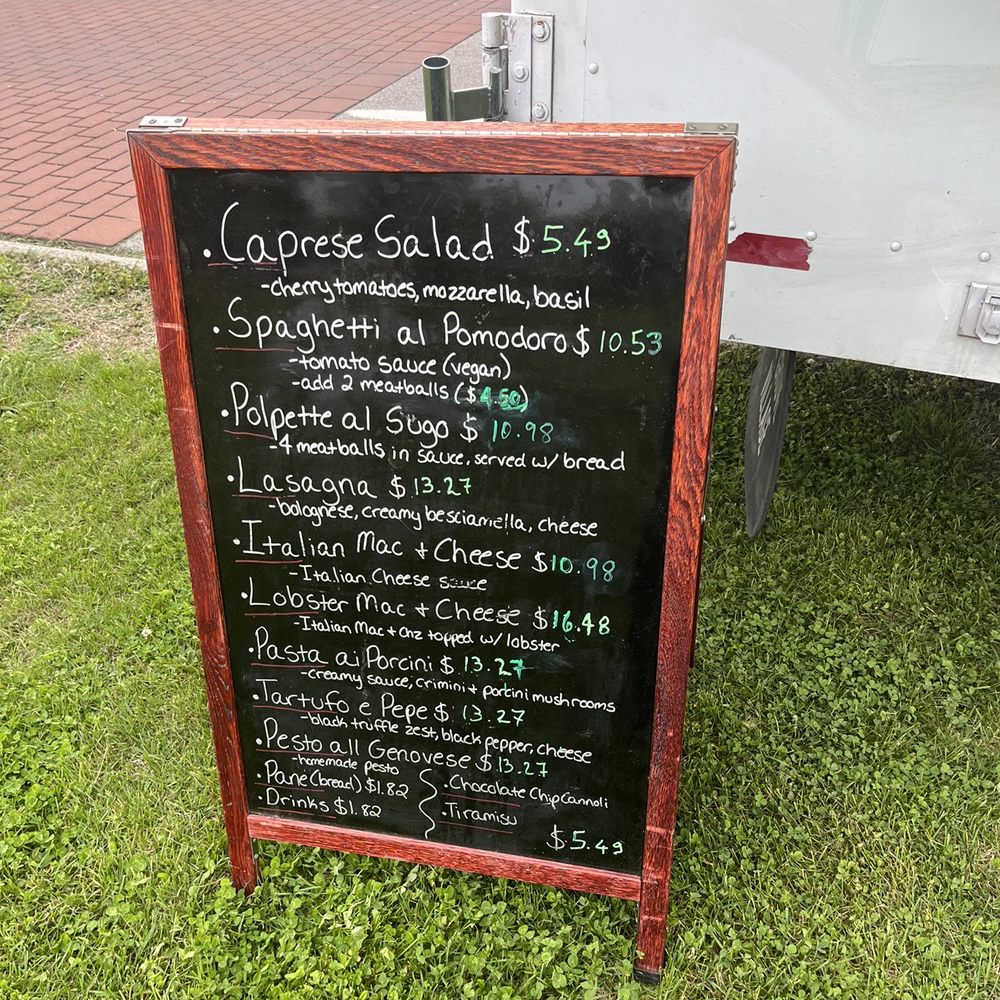 . Caprese Salad $5.49
-cherry tomatoes, mozzarella, basil
. Spaghetti al Pomodoro $10.53
-tomato sauce (vegan)
-add 2 meatballs ($4.50)
. Polpette al Sugo $10.98
-4 meatballs in sauce, served w/ bread
. Lasagna $13.27
-bolognese, creamy besciamella, cheese
. Italian Mac + Cheese $10.98
-Italian Cheese sauce
. Lobster Mac + Cheese $16.48
-Italian Mac + Chz topped w/ lobster
. Pasta ai Porcini $13.27
-creamy sauce, crimini + porcini mushrooms
. Tartufo e Pepe $13.27
-black truffle zest, black pepper, cheese
. Pesto all Genovese $13.27
-homemade pesto
. Pane (bread) $1.82
. Drinks $1.82
. Chocolate Chip Cannoli
. Tiramisu
$5.49